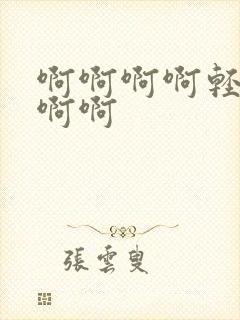 啊啊啊啊輕
啊啊
張雲叟